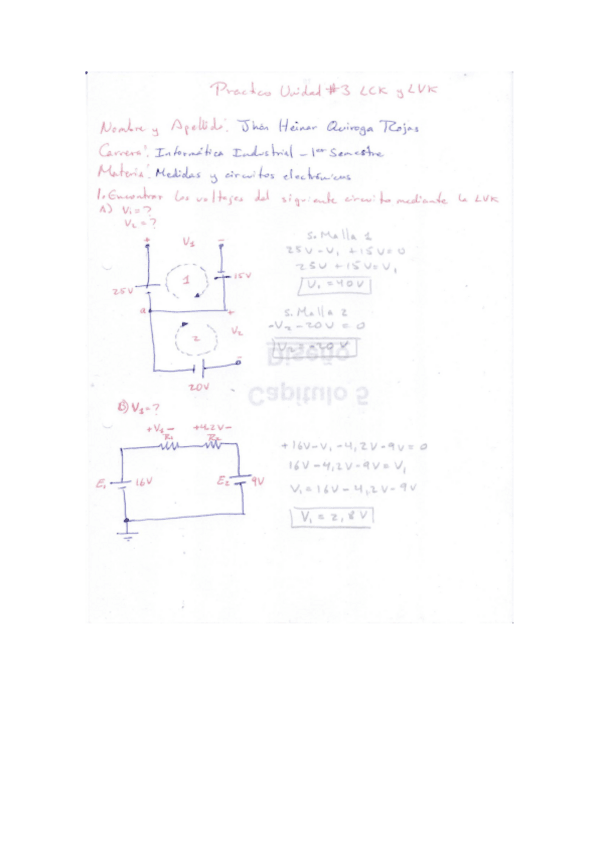 Practico Unidad #3 LCK y LVK
Nombre y Apellido: Jhon Heinar Quiroga Rojas
Carrera: Informática Industrial - 1er Semestre
Materia: Medidas y circuitos electrónicos
1. Encontrar los voltajes del siguiente circuito mediante la LVK
A) V1 = ?
V2 = ?
+ V1 -
1
25V
15V
a
+
2
V2
-
20V
S. Malla 1
25V - V1 + 15V = 0
25V + 15V = V1
V1 = 40V
S. Malla 2
-V2 - 20V = 0
V2 = -20V
Diseño
Capítulo 5
B) V1 = ?
+V1- +4,2V-
R1 R2
E1 16V E2 9V
+16V - V1 - 4,2V - 9V = 0
16V - 4,2V - 9V = V1
V1 = 16V - 4,2V - 9V
V1 = 2,8V